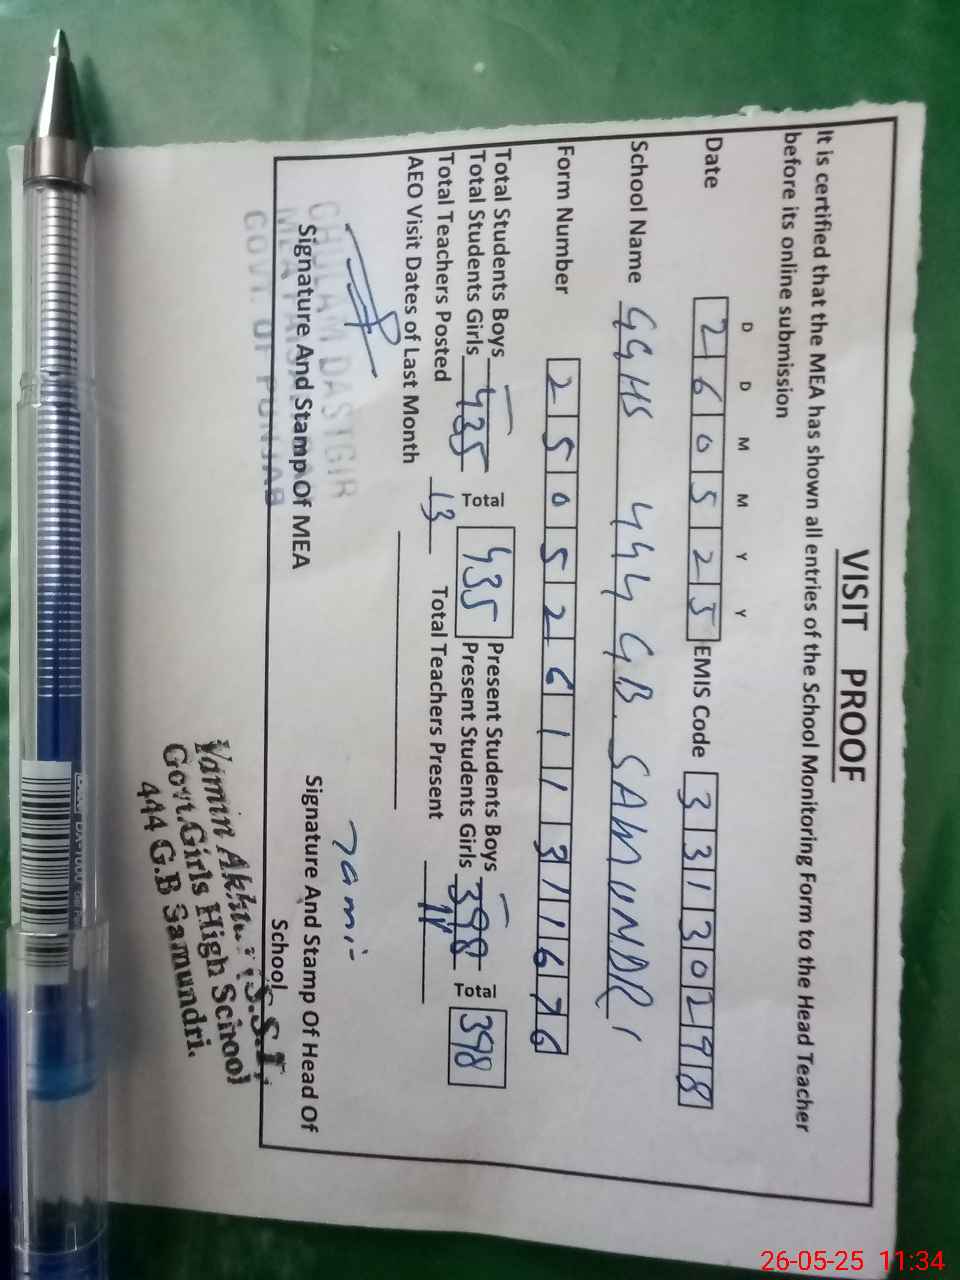 VISIT PROOF
It is certified that the MEA has shown all entries of the School Monitoring Form to the Head Teacher
before its online submission
D D M M Y Y
Date 2 6 0 5 2 5 EMIS Code 3 3 1 3 0 2 9 8
School Name GGHS 444 G.B. SAMUNDRI
Form Number 2 5 0 5 2 6 1 1 1 3 1 1 6 7 6
Total Students Boys — Present Students Boys —
Total Students Girls 435 Total 435 Present Students Girls 398 Total 398
Total Teachers Posted 13 Total Teachers Present
AEO Visit Dates of Last Month
GHULAM DASTGIR
MEA
GOVT. OF PUNJAB
Signature And Stamp Of MEA
Signature And Stamp Of Head Of
School
Yamin Akhtar S.S.T.
Govt.Girls High School
444 G.B Samundri.
26-05-25 11:34